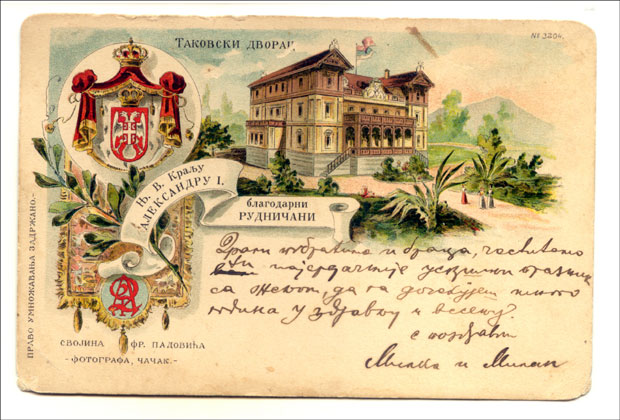 ТАКОВСКИ ДВОРАЦ
№ 3204.
Њ. В. КРАЉУ
АЛЕКСАНДРУ I.
благодарни
РУДНИЧАНИ
ПРАВО УМНОЖАВАЊА ЗАДРЖАНО.-
СВОЈИНА ФР. ПАДОВИЋА
-ФОТОГРАФА, ЧАЧАК.-
Драги и браћа, честитамо
најсрдачније
са да га много
година у здрављу и весељу.
с поздрав
Милева и Милан